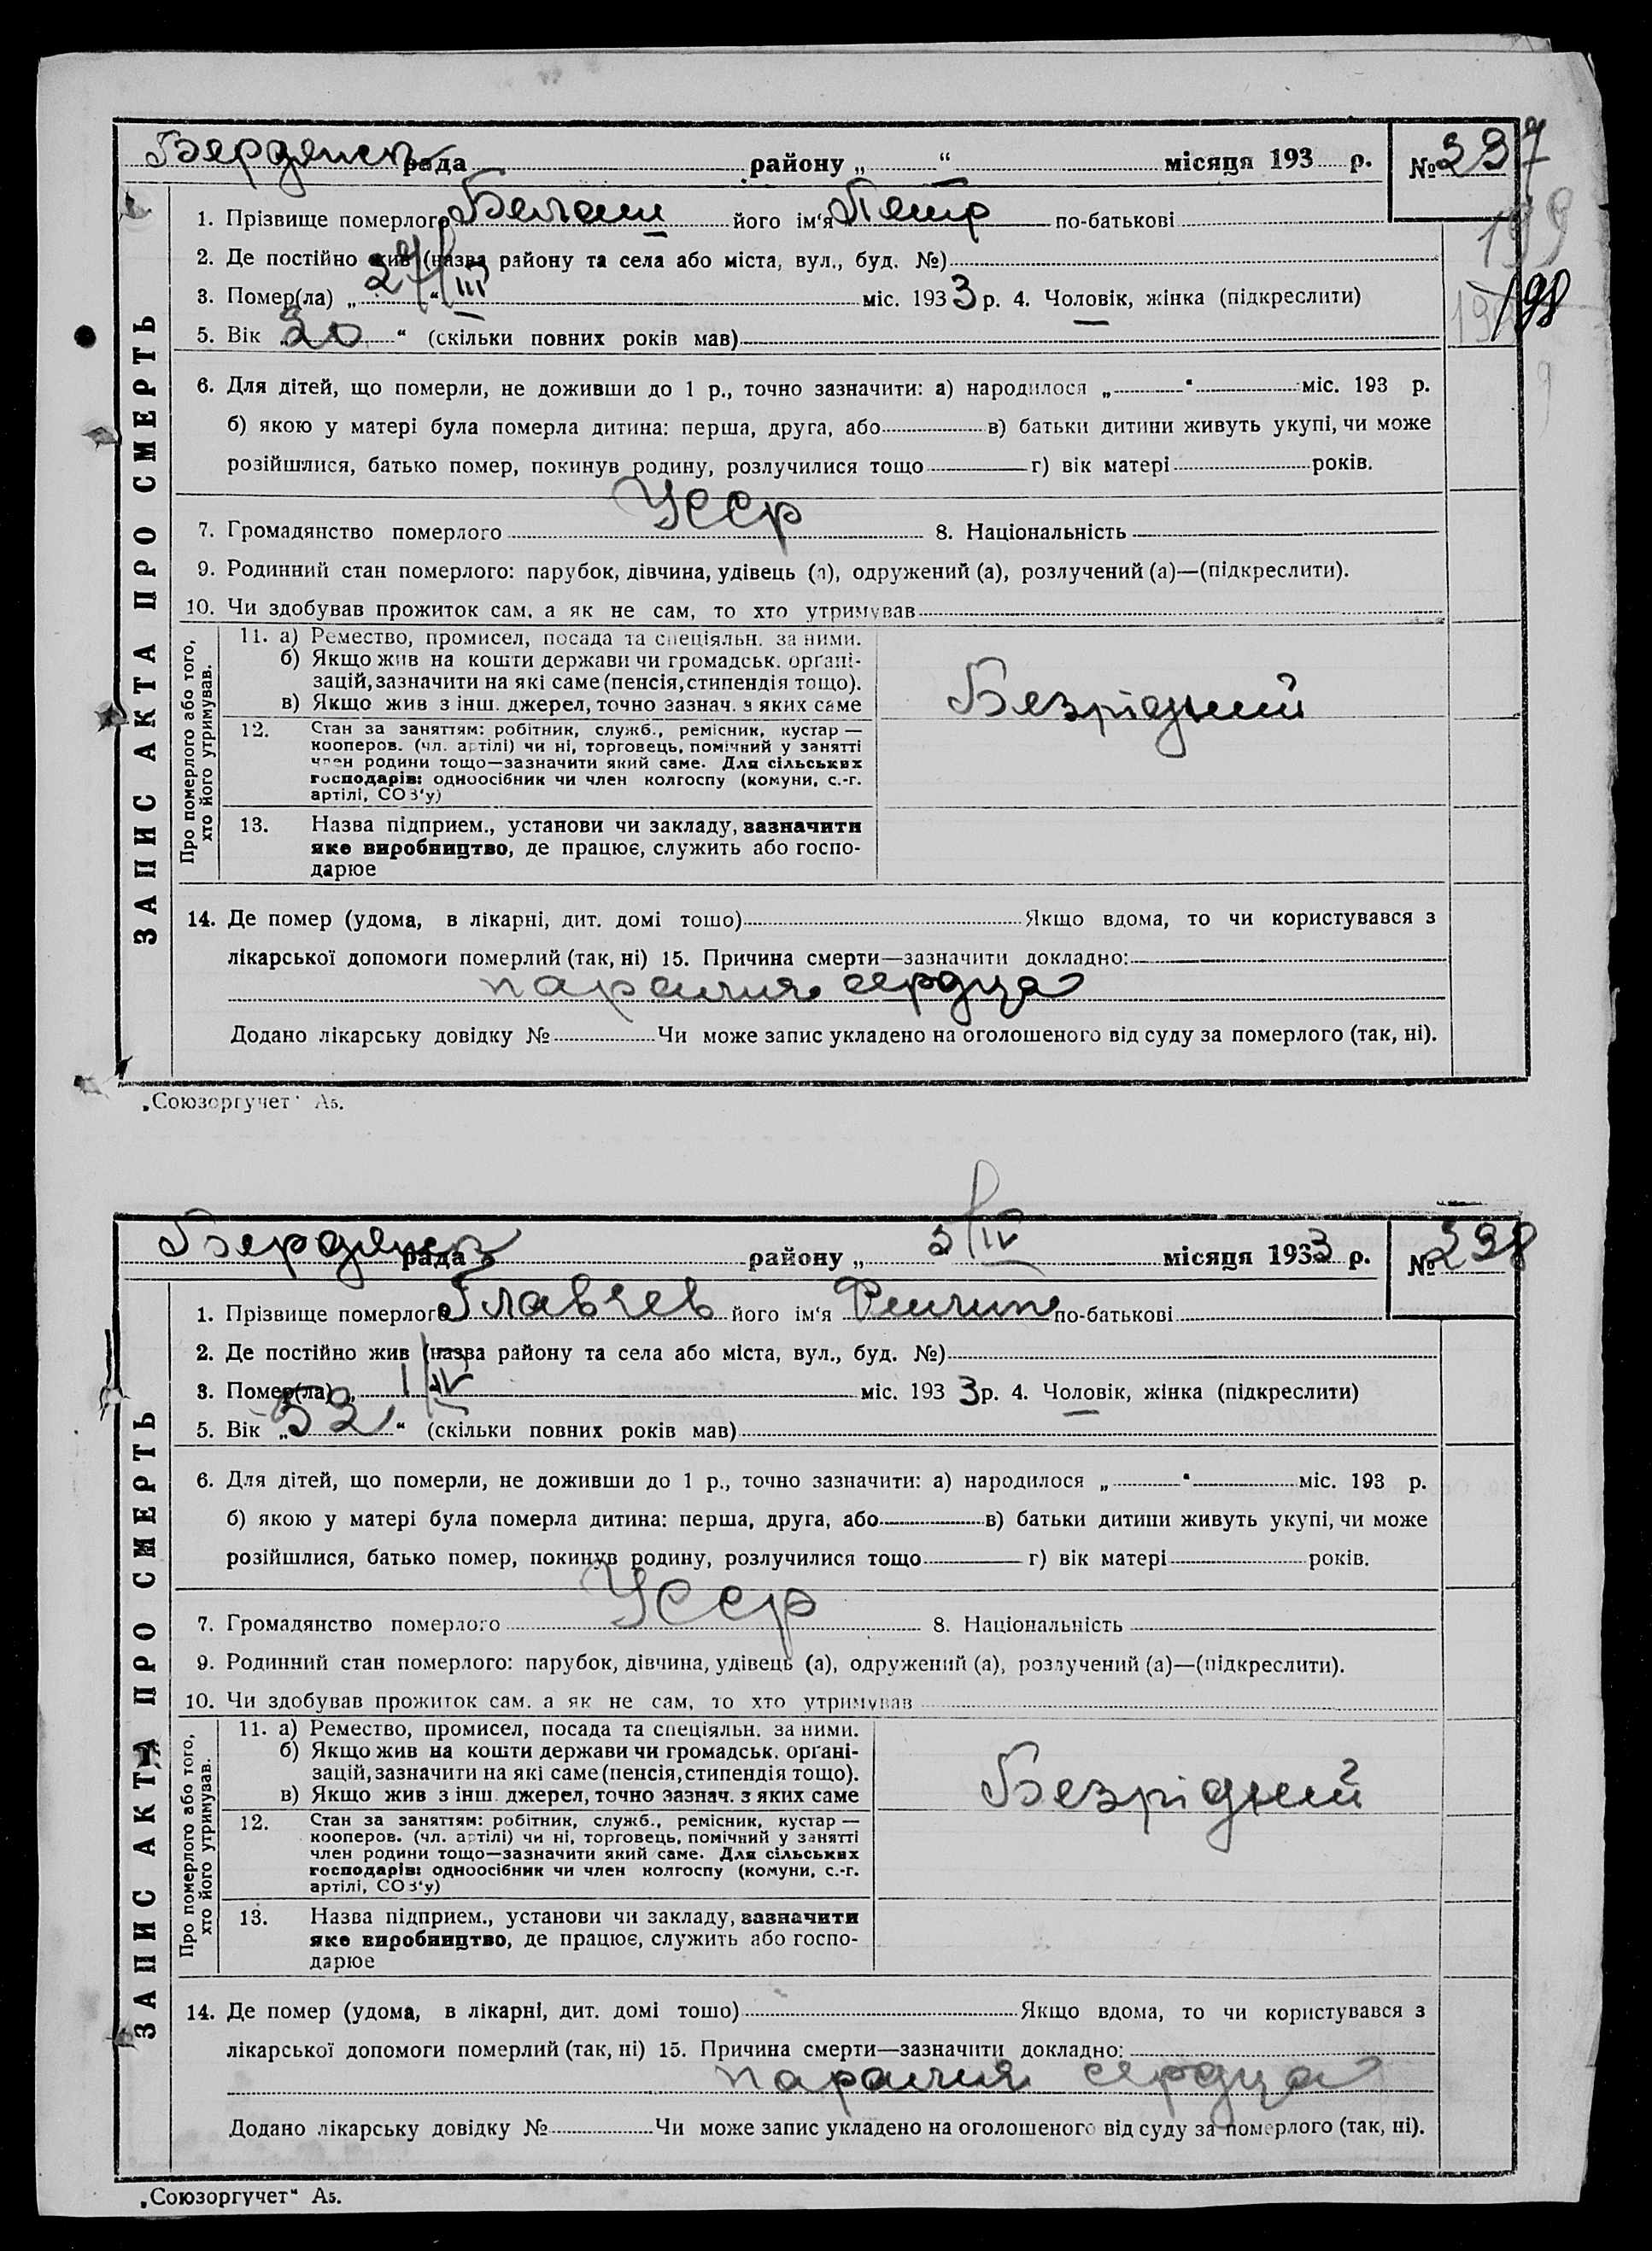 Бердянск рада району „ “ місяця 193 р. № 237
199
198
1. Прізвище померлого його ім‘я Петр по-батькові
2. Де постійно жив (назва району та села або міста, вул., буд. №)
3. Помер(ла) „ 27/III “ міс. 1933 р. 4. Чоловік, жінка (підкреслити)
5. Вік „ 20 “ (скільки повних років мав)
6. Для дітей, що померли, не доживши до 1 р., точно зазначити: а) народилося „ “ міс. 193 р.
б) якою у матері була померла дитина: перша, друга, або в) батьки дитини живуть укупі, чи може
розійшлися, батько помер, покинув родину, розлучилися тощо г) вік матері років.
7. Громадянство померлого УССР 8. Національність
9. Родинний стан померлого: парубок, дівчина, удівець (а), одружений (а), розлучений (а)—(підкреслити).
10. Чи здобував прожиток сам, а як не сам, то хто утримував
Про померлого або того, хто його утримував.
11. а) Ремество, промисел, посада та спеціяльн. за ними.
б) Якщо жив на кошти держави чи громадськ. орґані-
зацій, зазначити на які саме (пенсія, стипендія тощо).
в) Якщо жив з інш. джерел, точно зазнач. з яких саме
Безрідний
12. Стан за заняттям: робітник, служб., ремісник, кустар —
кооперов. (чл. артілі) чи ні, торговець, помічний у занятті
член родини тощо—зазначити який саме. Для сільських
господарів: одноосібник чи член колгоспу (комуни, с.-г.
артілі, СОЗ‘у)
13. Назва підприєм., установи чи закладу, зазначити
яке виробництво, де працює, служить або госпо-
дарює
14. Де помер (удома, в лікарні, дит. домі тощо) Якщо вдома, то чи користувався з
лікарської допомоги померлий (так, ні) 15. Причина смерти—зазначити докладно:
паралич сердца
Додано лікарську довідку № Чи може запис укладено на оголошеного від суду за померлого (так, ні).
ЗАПИС АКТА ПРО СМЕРТЬ
„Союзоргучет“ А5.
Бердянск рада району „ 3/IV місяця 1933 р. № 238
1. Прізвище померлого Главчев його ім‘я Филип по-батькові
2. Де постійно жив (назва району та села або міста, вул., буд. №)
3. Помер(ла) „ 1/IV міс. 1933 р. 4. Чоловік, жінка (підкреслити)
5. Вік „ 52 “ (скільки повних років мав)
6. Для дітей, що померли, не доживши до 1 р., точно зазначити: а) народилося „ “ міс. 193 р.
б) якою у матері була померла дитина: перша, друга, або в) батьки дитини живуть укупі, чи може
розійшлися, батько помер, покинув родину, розлучилися тощо г) вік матері років.
7. Громадянство померлого УССР 8. Національність
9. Родинний стан померлого: парубок, дівчина, удівець (а), одружений (а), розлучений (а)—(підкреслити).
10. Чи здобував прожиток сам, а як не сам, то хто утримував
Про померлого або того, хто його утримував.
11. а) Ремество, промисел, посада та спеціяльн. за ними.
б) Якщо жив на кошти держави чи громадськ. орґані-
зацій, зазначити на які саме (пенсія, стипендія тощо).
в) Якщо жив з інш. джерел, точно зазнач. з яких саме
Безрідний
12. Стан за заняттям: робітник, служб., ремісник, кустар —
кооперов. (чл. артілі) чи ні, торговець, помічний у занятті
член родини тощо—зазначити який саме. Для сільських
господарів: одноосібник чи член колгоспу (комуни, с.-г.
артілі, СОЗ‘у)
13. Назва підприєм., установи чи закладу, зазначити
яке виробництво, де працює, служить або госпо-
дарює
14. Де помер (удома, в лікарні, дит. домі тощо) Якщо вдома, то чи користувався з
лікарської допомоги померлий (так, ні) 15. Причина смерти—зазначити докладно:
паралич сердца
Додано лікарську довідку № Чи може запис укладено на оголошеного від суду за померлого (так, ні).
ЗАПИС АКТА ПРО СМЕРТЬ
„Союзоргучет“ А5.